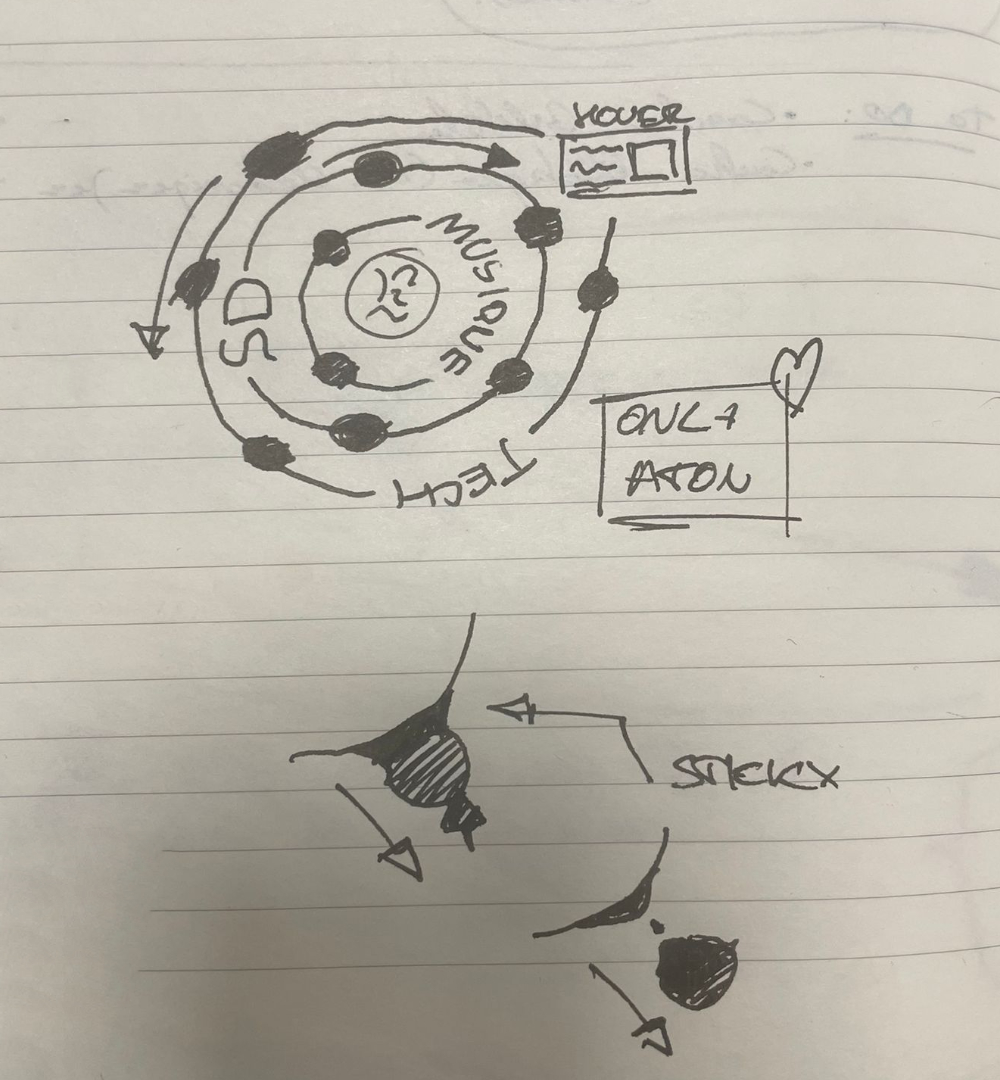 HOVER
MUSIQUE
SD
TECH
ONLY
ATON
STICKY